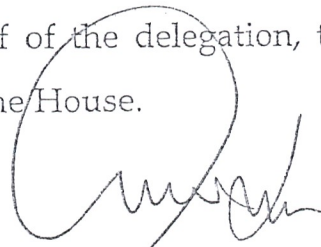 f of the delegation, t
ne House.